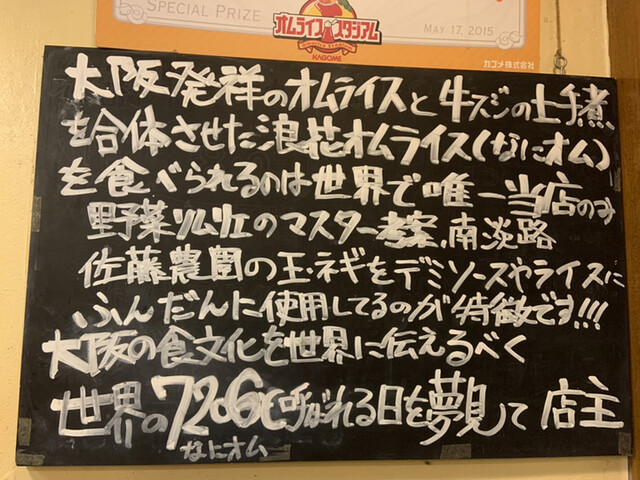 SPECIAL PRIZE
オムライススタジアム
KAGOME
MAY 17, 2015
カゴメ株式会社
大阪発祥のオムライスと牛スジの土手煮
を合体させた浪花オムライス(なにオム)
を食べられるのは世界で唯一当店のみ
野菜ソムリエのマスター考案、南淡路
佐藤農園の玉ネギをデミソースやライスに
ふんだんに使用してるのが特徴です!!!
大阪の食文化を世界に伝えるべく
世界の7206と呼ばれる日を夢見て 店主
なにオム